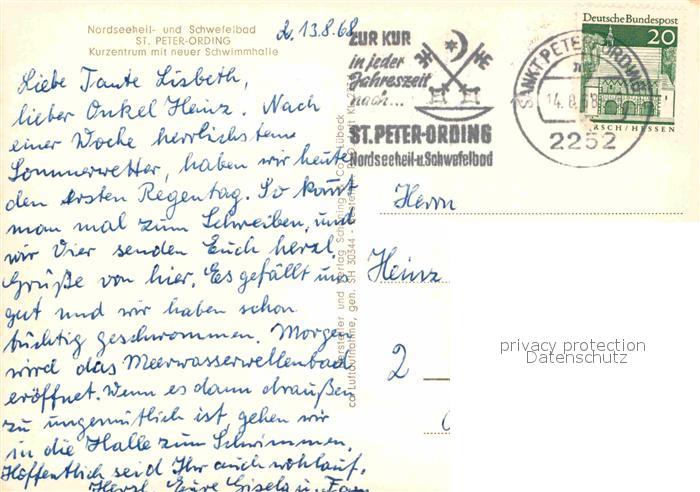 Nordseeheil- und Schwefelbad
ST. PETER-ORDING
Kurzentrum mit neuer Schwimmhalle
d. 13.8.68
Liebe Tante Lisbeth,
lieber Onkel Heinz. Nach
einer Woche herrlichstem
Sommerwetter, haben wir heute
den ersten Regentag. So kommt
man mal zum Schreiben, und
wir Vier senden Euch herzl.
Grüße von hier. Es gefällt uns
gut und wir haben schon
tüchtig geschwommen. Morgen
wird das Meerwasserwellenbad
eröffnet. Wenn es dann draußen
zu ungemütlich ist, gehen wir
in die Halle zum Schwimmen.
Hoffentlich seid Ihr auch wohlauf.
Herzl. Eure Gisela u. Fam
Hersteller und Verlag Schöning & Co., Lübeck
Luftaufnahme, gen. SH 30344
ZUR KUR
in jeder
Jahreszeit
nach...
ST. PETER-ORDING
Nordseeheil-u. Schwefelbad
SANKT PETER-ORDING
14.8.68
2252
Deutsche Bundespost
20
RSCH/HESSEN
Herrn
Heinz
2
privacy protection
Datenschutz